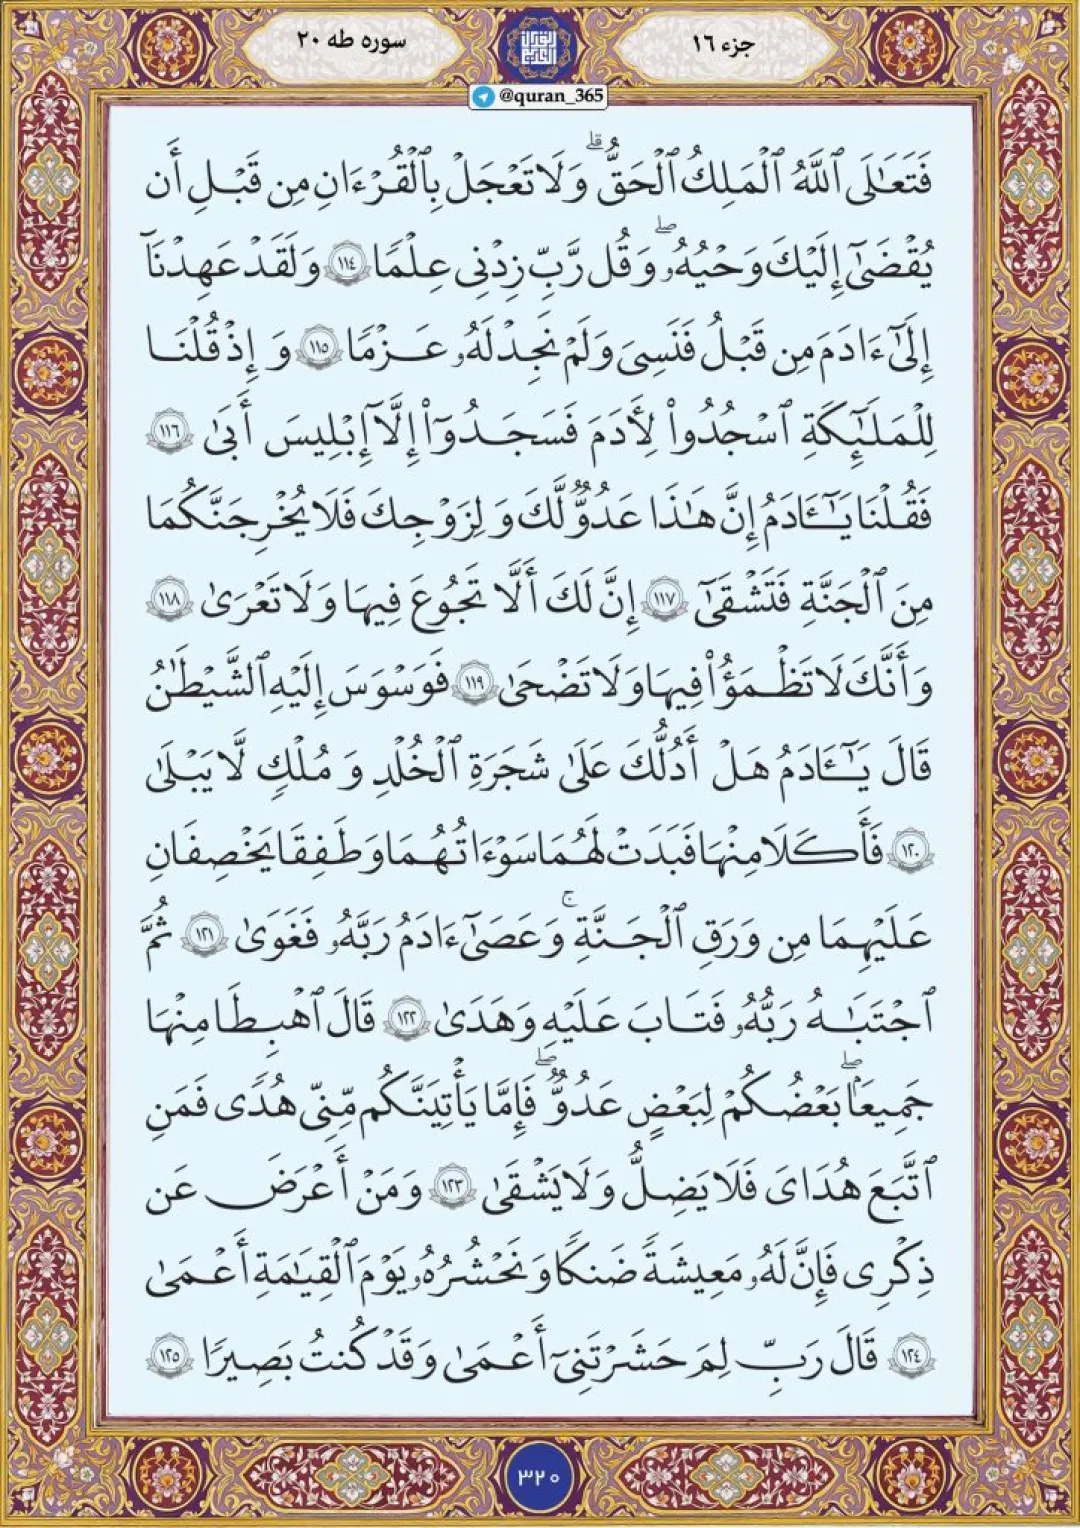 جزء ۱۶
سوره طه ۲۰
@quran_365
فَتَعَٰلَى ٱللَّهُ ٱلْمَلِكُ ٱلْحَقُّ ۗ وَلَا تَعْجَلْ بِٱلْقُرْءَانِ مِن قَبْلِ أَن
يُقْضَىٰٓ إِلَيْكَ وَحْيُهُۥ ۖ وَقُل رَّبِّ زِدْنِى عِلْمًا ١١٤ وَلَقَدْ عَهِدْنَآ
إِلَىٰٓ ءَادَمَ مِن قَبْلُ فَنَسِىَ وَلَمْ نَجِدْ لَهُۥ عَزْمًا ١١٥ وَإِذْ قُلْنَا
لِلْمَلَٰٓئِكَةِ ٱسْجُدُوا۟ لِأَدَمَ فَسَجَدُوٓا۟ إِلَّآ إِبْلِيسَ أَبَىٰ ١١٦
فَقُلْنَا يَٰٓـَٔادَمُ إِنَّ هَٰذَا عَدُوٌّ لَّكَ وَلِزَوْجِكَ فَلَا يُخْرِجَنَّكُمَا
مِنَ ٱلْجَنَّةِ فَتَشْقَىٰٓ ١١٧ إِنَّ لَكَ أَلَّا تَجُوعَ فِيهَا وَلَا تَعْرَىٰ ١١٨
وَأَنَّكَ لَا تَظْمَؤُا۟ فِيهَا وَلَا تَضْحَىٰ ١١٩ فَوَسْوَسَ إِلَيْهِ ٱلشَّيْطَٰنُ
قَالَ يَٰٓـَٔادَمُ هَلْ أَدُلُّكَ عَلَىٰ شَجَرَةِ ٱلْخُلْدِ وَمُلْكٍ لَّا يَبْلَىٰ
١٢٠ فَأَكَلَا مِنْهَا فَبَدَتْ لَهُمَا سَوْءَاتُهُمَا وَطَفِقَا يَخْصِفَانِ
عَلَيْهِمَا مِن وَرَقِ ٱلْجَنَّةِ ۚ وَعَصَىٰٓ ءَادَمُ رَبَّهُۥ فَغَوَىٰ ١٢١ ثُمَّ
ٱجْتَبَٰهُ رَبُّهُۥ فَتَابَ عَلَيْهِ وَهَدَىٰ ١٢٢ قَالَ ٱهْبِطَا مِنْهَا
جَمِيعًۢا ۖ بَعْضُكُمْ لِبَعْضٍ عَدُوٌّ ۖ فَإِمَّا يَأْتِيَنَّكُم مِّنِّى هُدًى فَمَنِ
ٱتَّبَعَ هُدَاىَ فَلَا يَضِلُّ وَلَا يَشْقَىٰ ١٢٣ وَمَنْ أَعْرَضَ عَن
ذِكْرِى فَإِنَّ لَهُۥ مَعِيشَةً ضَنكًا وَنَحْشُرُهُۥ يَوْمَ ٱلْقِيَٰمَةِ أَعْمَىٰ
١٢٤ قَالَ رَبِّ لِمَ حَشَرْتَنِىٓ أَعْمَىٰ وَقَدْ كُنتُ بَصِيرًا ١٢٥
۳۲۰